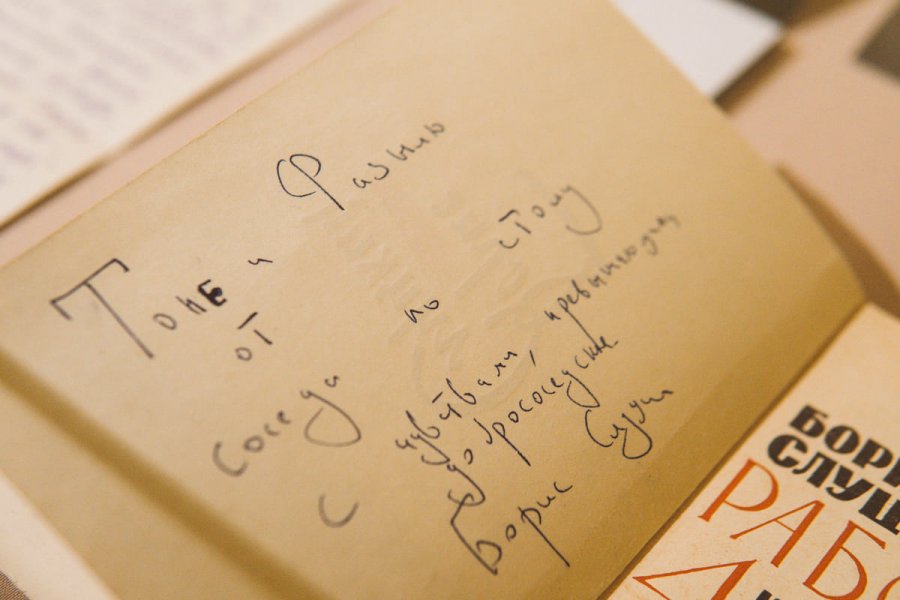 Тоне и Фазилю
от
соседи по столу
с чувствами, превышающими
добрососедские
Борис Слуцкий
БОРИ
СЛУЦ
РАБО